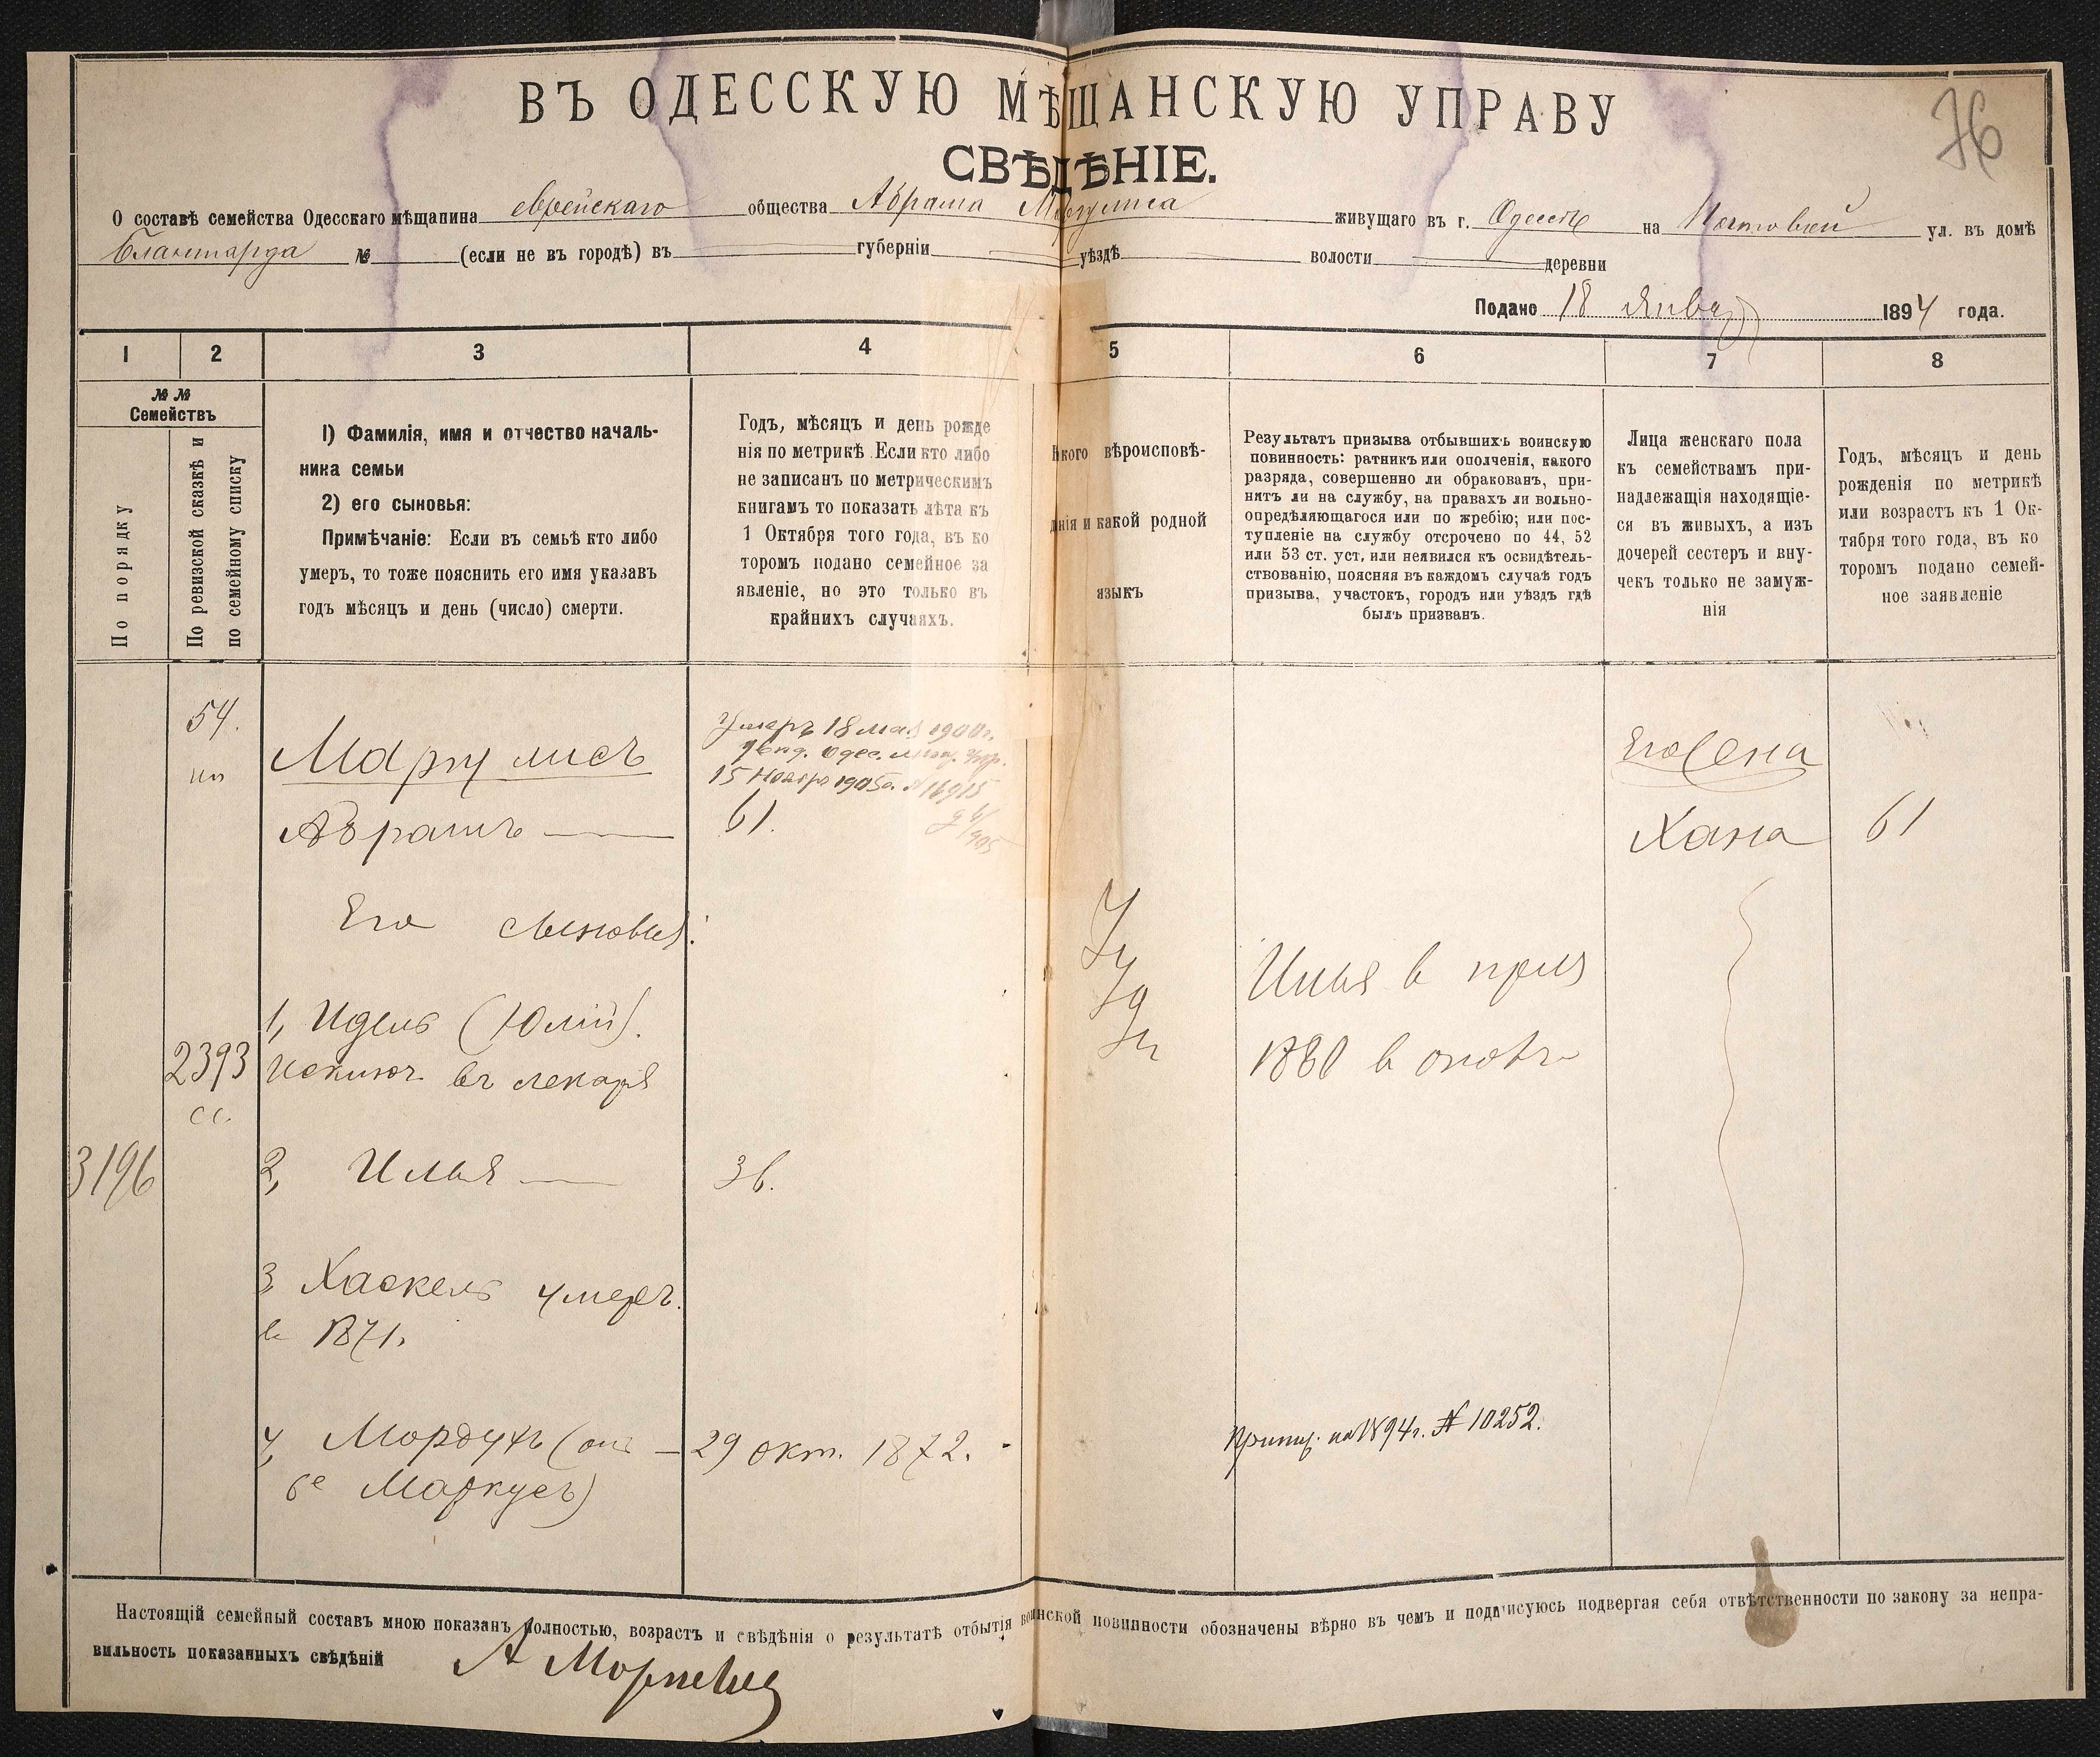 76
ВЪ ОДЕССКУЮ МѢЩАНСКУЮ УПРАВУ
СВѢДѢНІЕ.
О составѣ семейства Одесскаго мѣщанина еврейскаго общества Абрама Маргулиса живущаго въ г. Одессѣ на Почтовой ул. въ домѣ
Бланшарда № (если не въ городѣ) въ губерніи уѣздѣ волости деревни
Подано 18 Января 1894 года.
1 2 3 4 5 6 7 8
№ №
Семействъ
По порядку
По ревизской сказкѣ и
по семейному списку
1) Фамилія, имя и отчество началь-
ника семьи
2) его сыновья:
Примѣчаніе: Если въ семьѣ кто либо
умеръ, то тоже пояснить его имя указавъ
годъ мѣсяцъ и день (число) смерти.
Годъ, мѣсяцъ и день рожде
нія по метрикѣ Если кто либо
не записанъ по метрическимъ
книгамъ то показать лѣта къ
1 Октября того года, въ ко
торомъ подано семейное за
явленіе, но это только въ
крайнихъ случаяхъ.
вѣроисповѣ-
и какой родной
языкъ
Результатъ призыва отбывшихъ воинскую
повинность: ратникъ или ополченія, какого
разряда, совершенно ли обракованъ, при-
нятъ ли на службу, на правахъ ли вольно-
опредѣляющагося или по жребію; или пос-
тупленіе на службу отсрочено по 44, 52
или 53 ст. уст, или неявился къ освидѣтель-
ствованію, поясняя въ каждомъ случаѣ годъ
призыва, участокъ, городъ или уѣздъ гдѣ
былъ призванъ.
Лица женскаго пола
къ семействамъ при-
надлежащія находящіе-
ся въ живыхъ, а изъ
дочерей сестеръ и вну-
чекъ только не замуж-
нія
Годъ, мѣсяцъ и день
рожденія по метрикѣ
или возрастъ къ 1 Ок-
тября того года, въ ко
торомъ подано семей-
ное заявленіе
54.
Маргулисъ
Умеръ 18 мая 1900г.
Одес.
15 Ноября 1905г. № 16915
Его жена
Абрамъ
61.
Хана
61
Его сыновья:
1, Идель (Юлій).
2393
Исключ. въ лекаря
сс.
Илья в приз
1880 в
3196
2, Илья
36.
3, Хаскель умеръ
в 1871.
4, Мордухъ (онъ
же Маркусъ)
29 окт. 1872.
на 1894г. № 10252.
Настоящій семейный составъ мною показанъ полностью, возрастъ и свѣдѣнія о результатѣ отбытія воинской повинности обозначены вѣрно въ чемъ и подписуюсь подвергая себя отвѣтственности по закону за непра-
вильность показанныхъ свѣдѣній